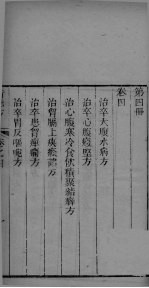 第四冊
卷四
治卒大腹水病方
治卒心腹癥堅方
治心腹寒冷食飲積聚結癖方
治胸膈上痰癊諸方
治卒患胸痺痛方
治卒胃反嘔啘方